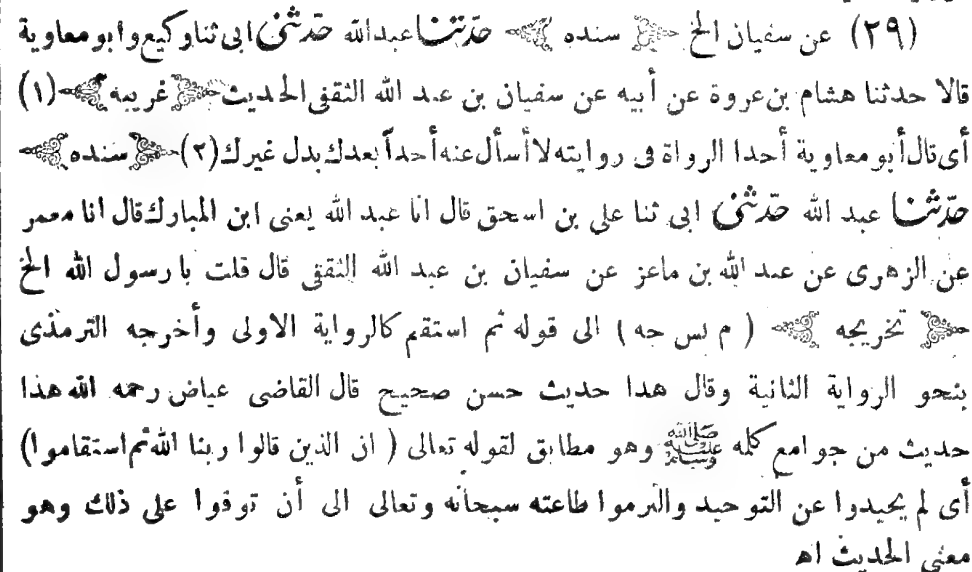 (٢٩) عن سفيان الخ ﴿ سنده ﴾ حدّثنا عبدالله حدّثنى ابى ثنا وكيع وابو معاوية
قالا حدثنا هشام بن عروة عن أبيه عن سفيان بن عبد الله الثقفى الحديث ﴿ غريبه ﴾ (١)
أى قال أبو معاوية أحدا الرواة فى روايته لا أسأل عنه أحداً بعدك بدل غيرك (٢) ﴿ سنده ﴾
حدّثنا عبد الله حدّثنى ابى ثنا على بن اسحق قال انا عبد الله يعنى ابن المبارك قال انا معمر
عن الزهرى عن عبد الله بن ماعز عن سفيان بن عبد الله الثقفى قال قلت يا رسول الله الخ
﴿ تخريجه ﴾ ( م نس جه ) الى قوله ثم استقم كالرواية الاولى وأخرجه الترمذى
بنحو الرواية الثانية وقال هدا حديث حسن صحيح قال القاضى عياض رحمه الله هذا
حديث من جوامع كلمه ﷺ وهو مطابق لقوله تعالى ( ان الذين قالوا ربنا الله ثم استقاموا )
أى لم يحيدوا عن التوحيد والتزموا طاعته سبحانه وتعالى الى أن توفوا على ذلك وهو
معنى الحديث اه